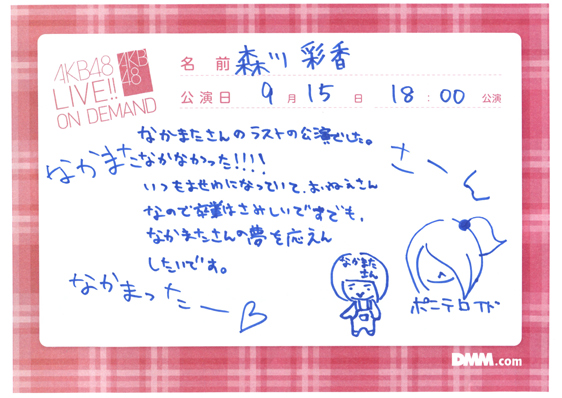 AKB48
LIVE!!
ON DEMAND
AKB
48
名 前 森川 彩香
公演日 9月15日 18:00公演
なかまたさんのラストの公演でした。
なかまたなかなかった!!!!
さーん
いつもませわになっていて、おねえさん
なので卒業はさみしいですでも、
なかまたさんの夢を応えん
したいです。
なかまったー
なかまた
さん
ポニテロイド
DMM.com